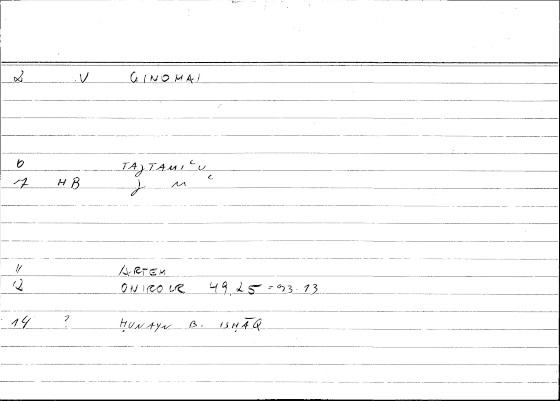 2 .V GINOMAI
6 TAJTAMIʿU
7 HB J M ʿ
11 ARTEM
12 ONIROCR 49,25 = 93.13
14 ? ḤUNAYN B. ISḤĀQ